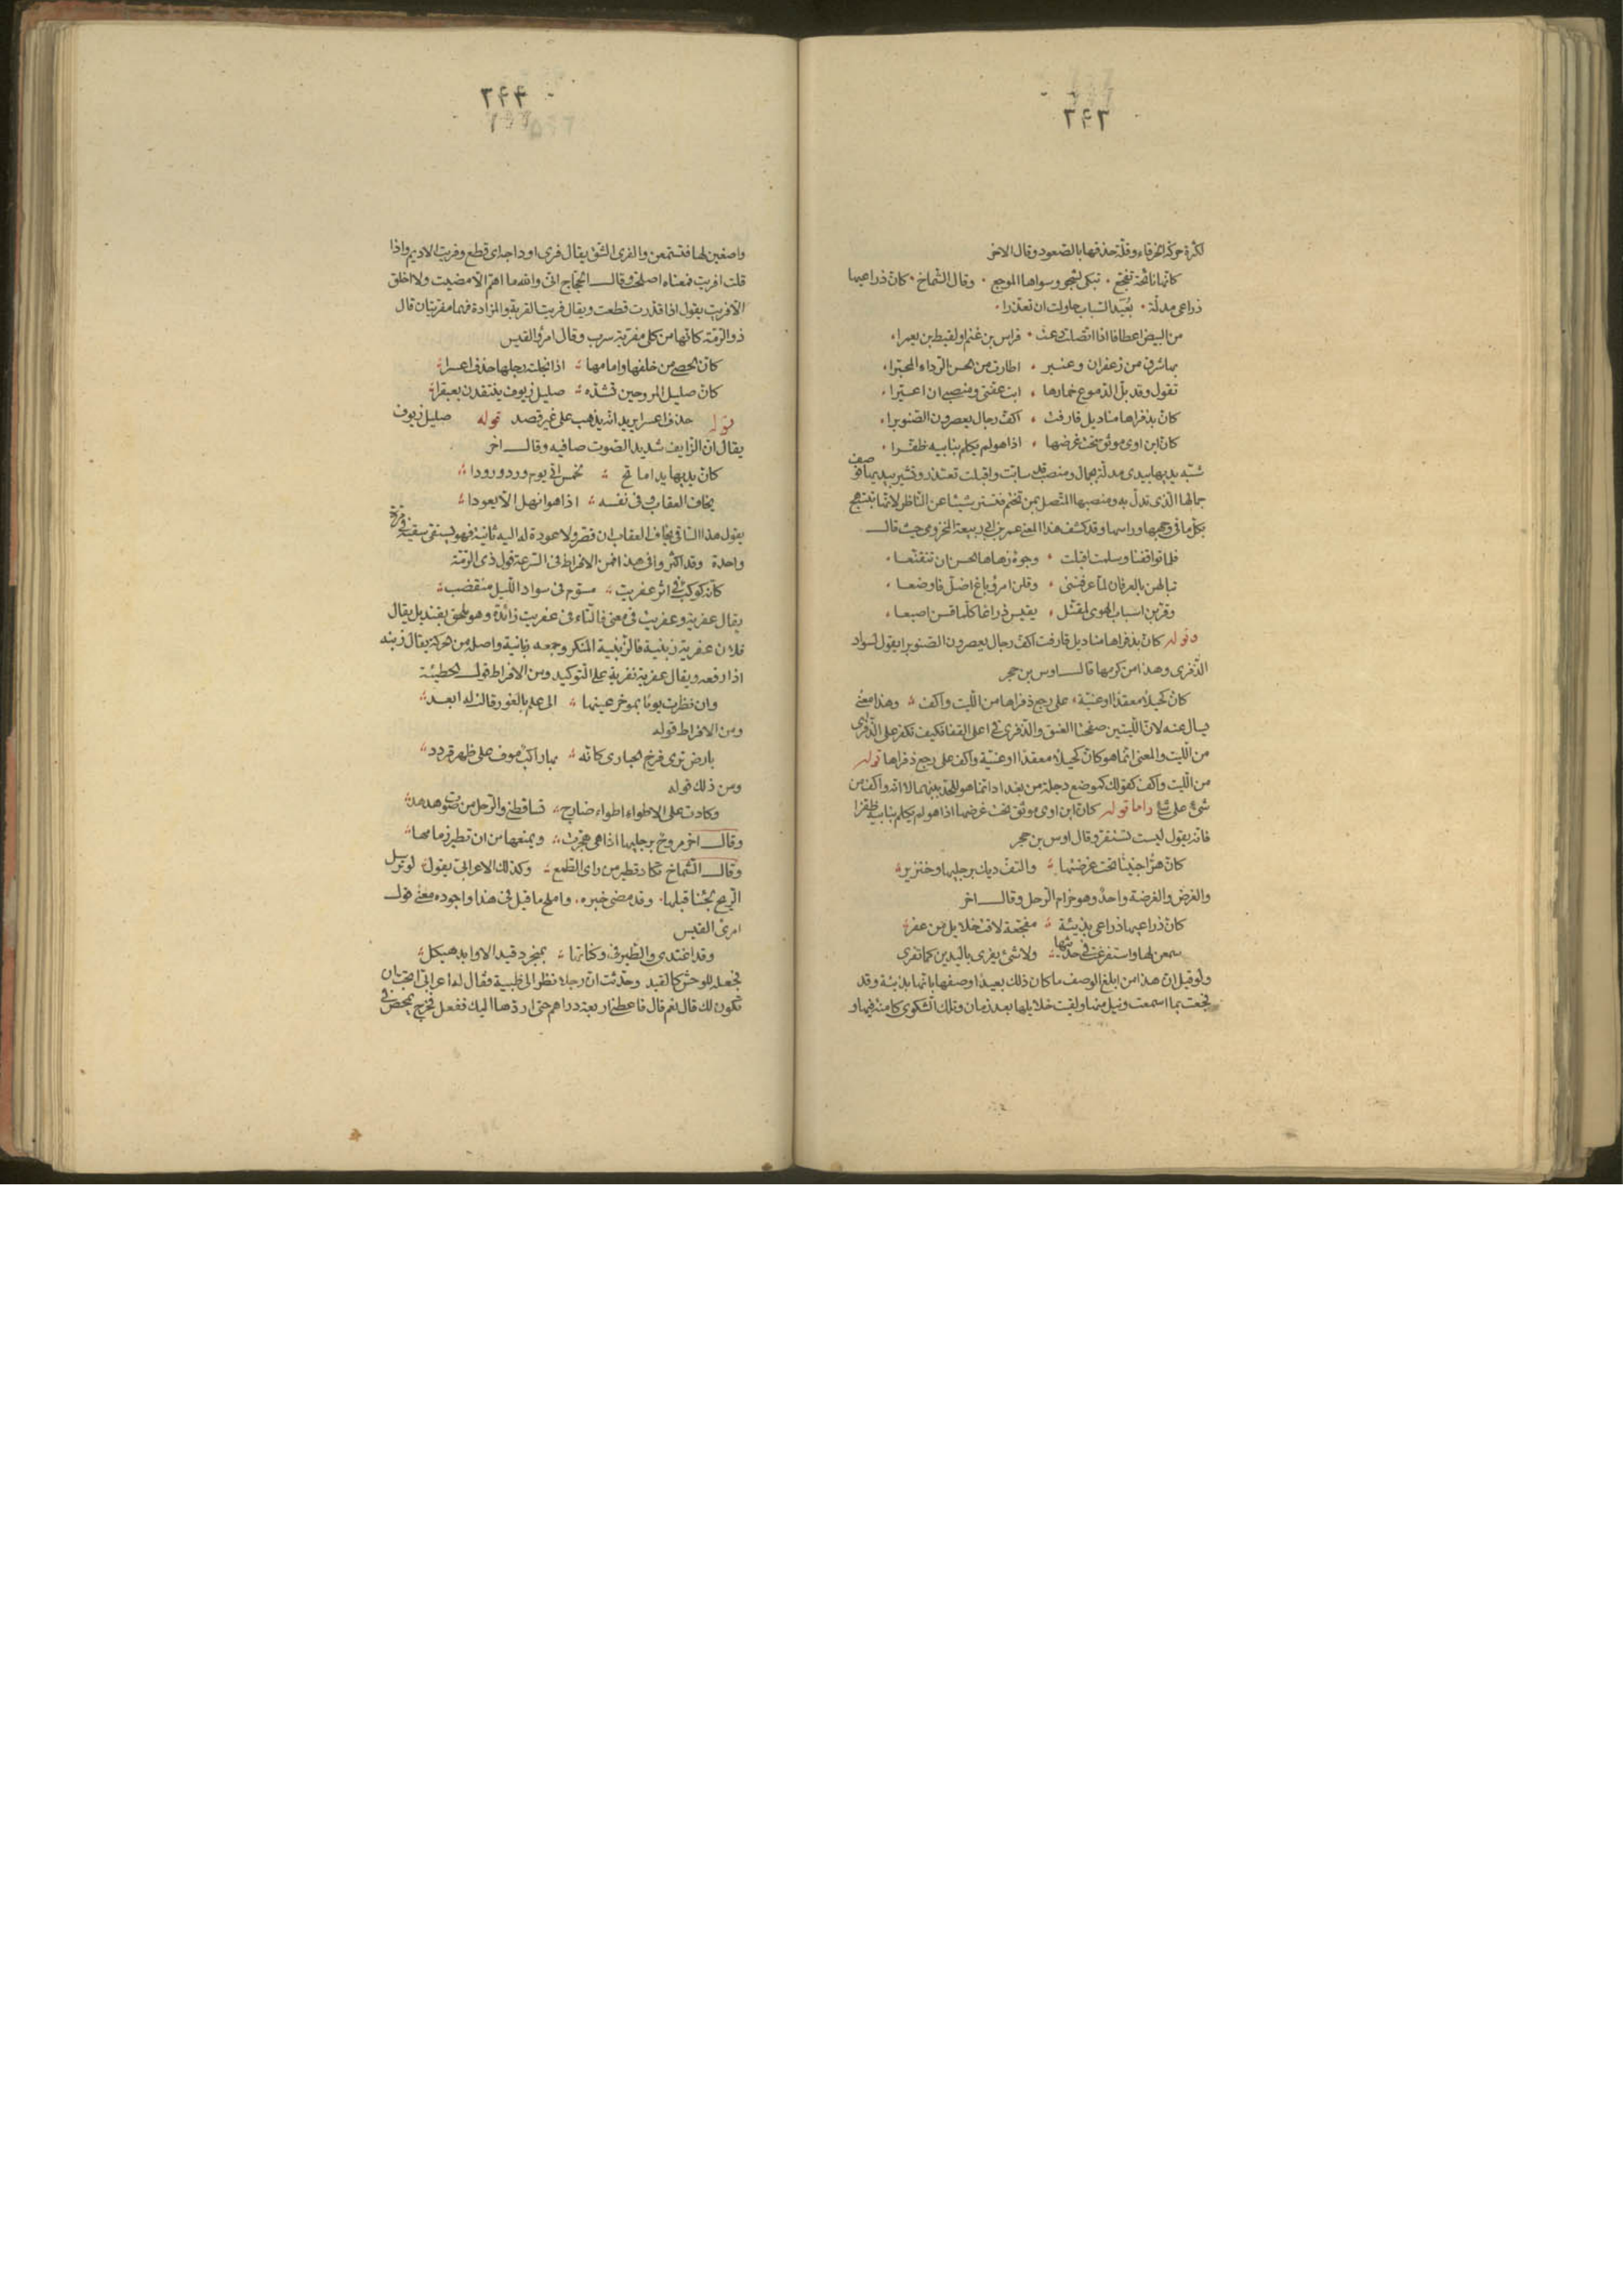 ٣٤٣
لكثرة حركة الخرقاء وقلة حذقها بالصعود وقال الآخر
كانها نائحة تفجع تبكى لشجو وسواها الموجع وقال الشماخ كان ذراعيها
ذراعى مدلة بعيد السباب حاولت ان تعذرا
من البيض اعطافا اذا اتصلت دعت فراس بن غنم او لقيط بن يعمرا
بها شرق من زعفران وعنبر اطارت من الحسن الرداء المحبرا
تقول وقد بل الدموع خمارها ابى عفتى ومنصبى ان اعيرا
كان بذفراها مناديل فارقت اكف رجال يعصرون الصنوبرا
كان ابن اوى موثق تحت غرضها اذا هو لم يكلم بنابيه ظفرا
شبه يديها بيدى مدلة بجمال ومنصب قد سابت واقبلت تعتذر وتشير بيديها
جمالها الذى تدل به ومنصبها المتصل بمن تختم فتستر شيئا عن الناظر لانها تبتهج
بكل ما فى وجهها وراسها وقد كشف هذا المعنى عمر بن ابى ربيعة المخزومى حيث قال
فلما تواقفنا وسلمت اقبلت وجوه زهاها الحسن ان تتقنعا
تبالهن بالعرفان لما عرفننى وقلن امرؤ باغ اضل فاوضعا
وقربن اسباب الهوى لمقتل يقيس ذراعا كلما قسن اصبعا
وقوله كان بذفراها مناديل فارقت اكف رجال يعصرون الصنوبرا يقول لسواد
الذفرى وهذا من كرمها قال اوس بن حجر
كان كحيلا معقدا او عنية على رجع ذفراها من الليت واكف وهذا معنى
يسال عنه لان الليتين صفحتا العنق والذفرى فى اعلى القفا فكيف تكف على الذفرى
من الليت والمعنى انما هو كان كحيلا معقدا او عنية واكف على رجع ذفراها قوله
من الليت واكف كقولك كموضع دجلة من بغداد انما هو للحد بينهما لا انه واكف من
شىء على شىء واما قوله كان ابن اوى موثق تحت غرضها اذا هو لم يكلم بنابيه ظفرا
فانه يقول ليست تستقر وقال اوس بن حجر
كان هرا جنيبا تحت غرضتها والتف ديك برجليها وخنزير
والغرض والغرضة واحد وهو حزام الرحل وقال اخر
كان ذراعيها ذراعى بذيئة مفجعة لاقت خلايل من عفر
سمعن لها واستفرغت فى حديثها ولا شىء يفرى باليدين كما تفرى
ولو قيل ان هذا من ابلغ الوصف ما كان ذلك بعيدا وصفها بانها بذيئة وقد
فجعت بما اسمعت ونيل منها ولقيت خلايلها بعد زمان وتلك الشكوى كامنة فيها و
٣٤٤
واصغين لها فتسمعن والفرى الشق يقال فرى اوداجه اى قطع وفريت الاديم واذا
قلت افريت فمعناه اصلحت وقال الحجاج انى والله ما اهم الا مضيت ولا اخلق
الا فريت يقول اذا قدرت قطعت ويقال فريت القربة والمزادة فهما مفريتان قال
ذو الرمة كانها من كلى مفرية سرب وقال امرؤ القيس
كان الحصى من خلفها وامامها اذا نجلته رجلها حذف اعسرا
كان صليل المرو حين تشذه صليل زيوف ينتقدن بعبقرا
قوله حذف اعسرا يريد انه يذهب على غير قصد قوله صليل زيوف
يقال ان الزايف شديد الصوت صافيه وقال اخر
كان يديها يدا ماتح لخمس اتى يوم ورد ورودا
يخاف العقاب فى نفسه اذا هو انهل الا يعودا
يقول هذا الساقى يخاف العقاب ان قصر ولا عودة له اليه ثانية فهو يستقى سقيته فى مرة
واحدة وقد اكثروا فى هذا فمن الافراط فى السرعة قول ذى الرمة
كانه كوكب فى اثر عفرية مسوم فى سواد الليل منقضب
يقال عفرية وعفريت فى معنى فالتاء فى عفريت زائدة وهو ملحق بقنديل يقال
فلان عفرية زبنية فالزبنية المنكر وجمعه زبانية واصله من الحركة يقال زبنه
اذا دفعه ويقال عفرية نفرية على التوكيد ومن الافراط قول الحطيئة
وان نظرت يوما بموخر عينها الى علم بالغور قالت له ابعد
ومن الافراط قوله
بارض ترى فرخ الحبارى كانه بها راكب موف على ظهر قردد
ومن ذلك قوله
وكادت على الاطواء اطواء ضارج تساقطنى والرحل من صوت هدهد
وقال اخر مروح برجليها اذا هى هجرت ويمنعها من ان تطير زمامها
وقال الشماخ تكاد تطير من راى القطيع وكذلك الاعرابى يقول لو ترسل
الريح لجئنا قبلها وقد مضى خبره واملح ما قيل فى هذا واجوده معنى قول
امرئ القيس
وقد اغتدى والطير فى وكناتها بمنجرد قيد الاوابد هيكل
فجعله للوحش كالقيد وحدثت ان رجلا نظر الى ظبية فقال له اعرابى اتحب ان
تكون لك قال نعم قال فاعطنى اربعة دراهم حتى اردها اليك ففعل فخرج يمحض فى